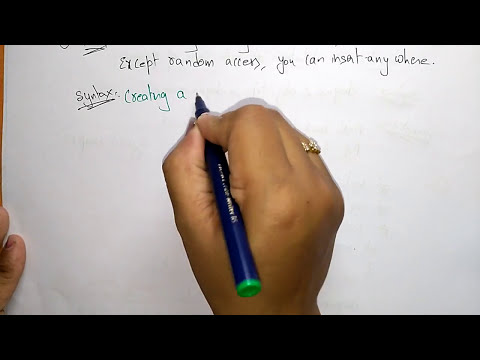 Except random access, you can insert any where.
Syntax:- Creating a